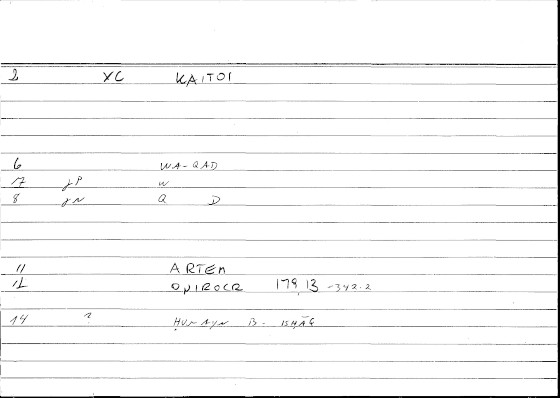 2 XC KAITOI
6 WA-QAD
7 gP W
8 gN Q D
11 ARTEM
12 ONIROCR 179,13 -342.2
14 ? ḤUNAYN B- ISḤĀQ